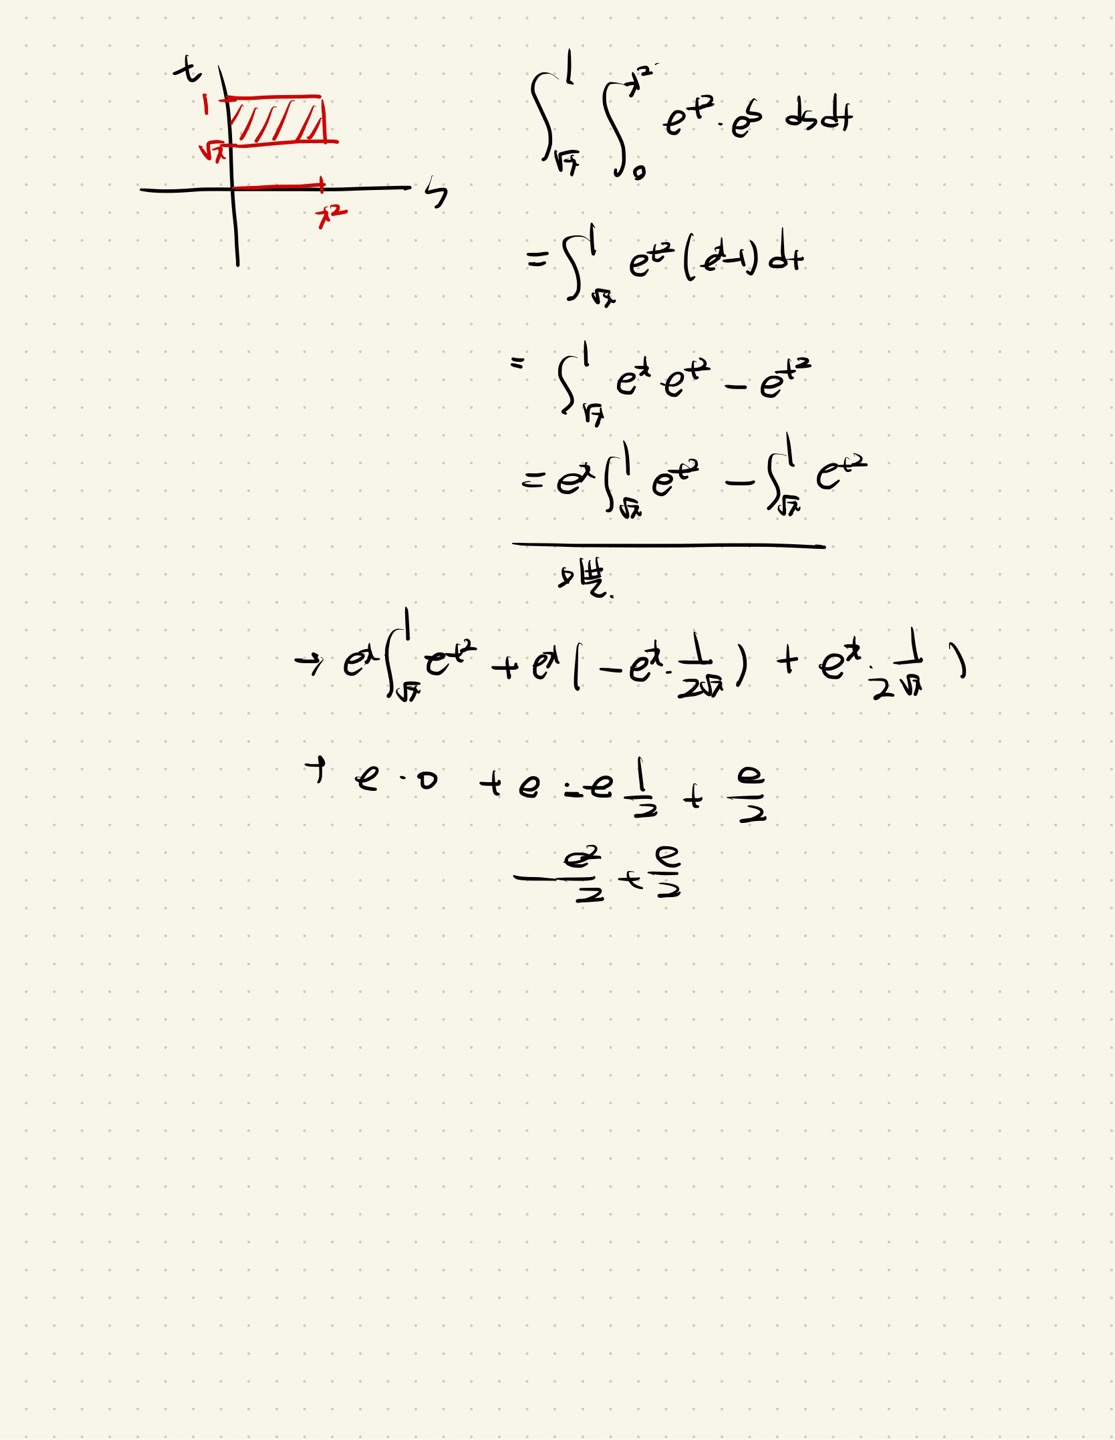 t
1
√x
s
x²
∫_{√x}^{1} ∫_{0}^{x²} e^{t²}·e^{s} dsdt
= ∫_{√x}^{1} e^{t²}(e^{x}-1)dt
= ∫_{√x}^{1} e^{x} e^{t²} - e^{t²}
= e^{x} ∫_{√x}^{1} e^{t²} - ∫_{√x}^{1} e^{t²}
→ e^{x} ∫_{√x}^{1} e^{t²} + e^{x}(-e^{x}·1/(2√x)) + e^{x}·1/(2√x))
→ e·0 + e·-e 1/2 + e/2
-e²/2 + e/2